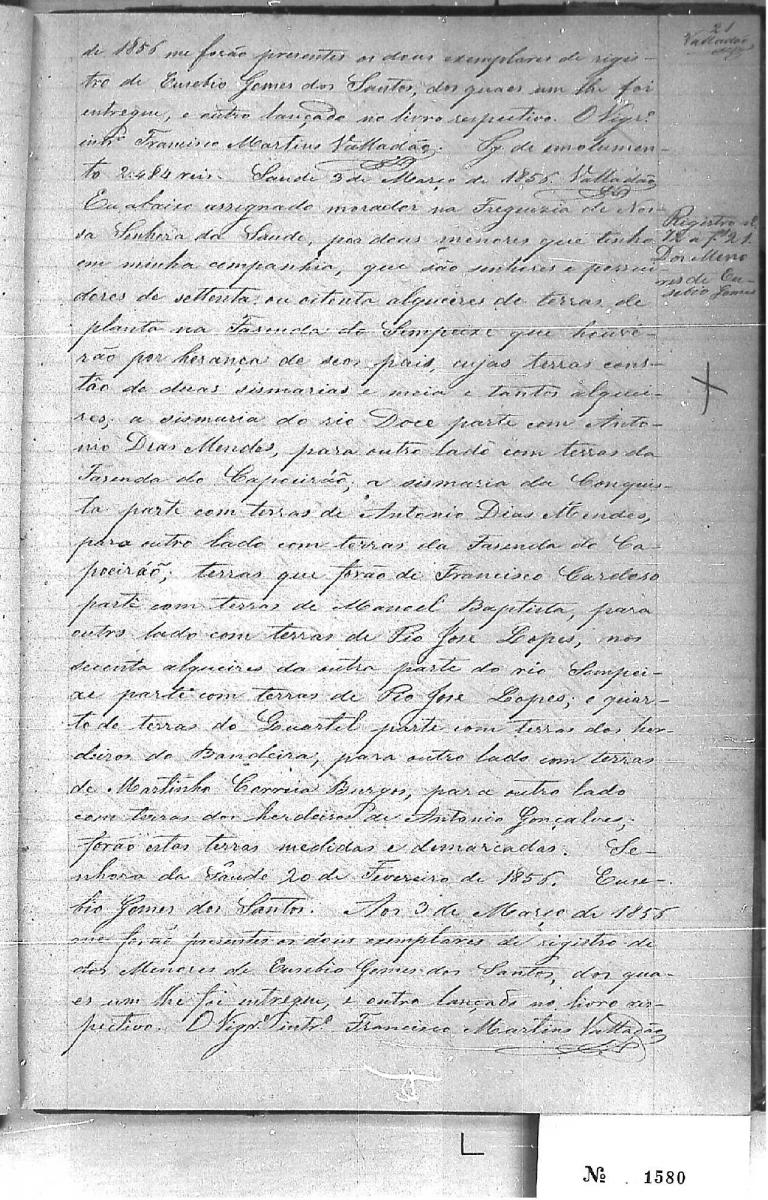 21
Valladão
de 1856 me forão presentes os dous exemplares de regis-
tro de Eusebio Gomes dos Santos, dos quaes um lhe foi
entregue, e outro lançado no livro respectivo. O Vigr.º
intr.º Francisco Martins Valladão. Sg. de emolumen-
to 2:484 reis. Saude 3 de Março de 1856. Valladão
Eu abaixo assignado morador na Freguezia de Nos-
sa Senhora da Saude, por dous menores que tenho
em minha companhia, que são senhores e possui-
dores de settenta ou oitenta alqueires de terras de
planta na Fazenda do Sempeixe que houve-
rão por herança de seos pais, cujas terras cons-
tão de duas sismarias e meia e tantos alquei-
res; a sismaria do rio Doce parte com Anto-
nio Dias Mendes, para outro lado com terras da
Fazenda do Capoirão; a sismaria da Conquis-
ta parte com terras de Antonio Dias Mendes,
para outro lado com terras da Fazenda do Ca-
poirão; terras que forão de Francisco Cardoso
parte com terras de Manoel Baptista, para
outro lado com terras de Pio Jose Lopes, nos
secenta alqueires da outra parte do rio Sempei-
xe parte com terras de Pio Jose Lopes; e quar-
to de terras do Quartel parte com terras dos her-
deiros do Bandeira, para outro lado com terras
de Martinho Correia Burgos, para outro lado
com terras dos herdeiros de Antonio Gonçalves;
forão estas terras medidas e demarcadas. Se-
nhora da Saude 20 de Fevereiro de 1856. Euse-
bio Gomes dos Santos. Aos 3 de Março de 1856
me forão presentes os dous exemplares de registro de
dos Menores de Eusebio Gomes dos Santos, dos qua-
es um lhe foi entregue, e outro lançado no livro res-
pectivo. O Vigr.º intr.º Francisco Martins Valladão
Registro
72 a f. 21.
Dos Meno
res de Eu-
sebio Gomes
Nº 1580